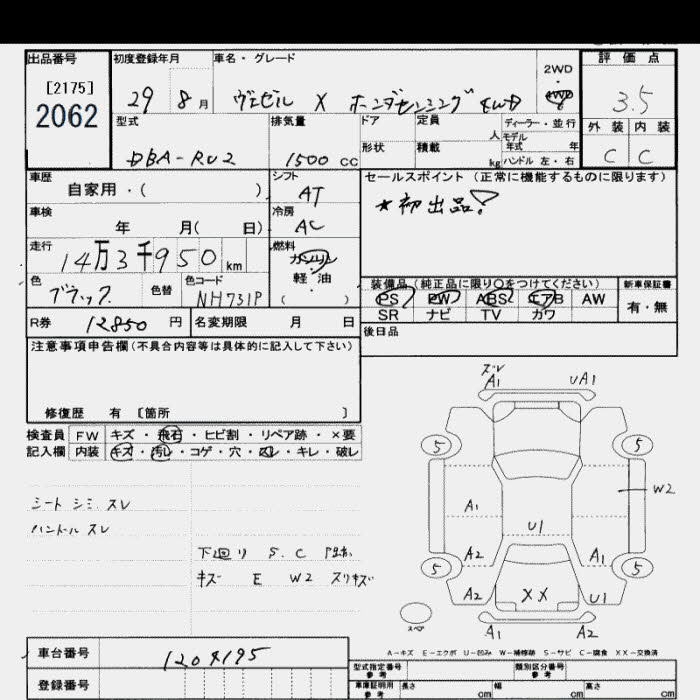 出品番号 初度登録年月 車名・グレード 2WD・4WD 評価点
[2175]
2062 29 8月 ヴェゼル X ホンダセンシング 4WD 3.5
型式 排気量 ドア 定員 人 ディーラー・並行 外装 内装
モデル年式 年
DBA-RU2 1500 cc 形状 積載 kg ハンドル 左・右 C C
車歴 自家用・( ) シフト AT セールスポイント (正常に機能するものに限ります)
★初出品!
車検 年 月( 日) 冷房 AC
走行 14万3千950 km 燃料 ガソリン
軽・油
( )
色 ブラック 色替 色コード NH731P
装備品(純正品に限り○をつけてください) 新車保証書
PS PW ABS エアB AW 有・無
SR ナビ TV カワ
R券 12850 円 名変期限 月 日 後日品
注意事項申告欄(不具合内容等は具体的に記入して下さい)
修復歴 有 [箇所 ]
検査員 FW キズ・飛石・ヒビ割・リペア跡・×要
記入欄 内装 キズ・汚レ・コゲ・穴・スレ・キレ・破レ
シート シミ スレ
ハンドル スレ
下廻り S.C
キズ E W2 スリキズ
ズレ
A1 UA1
5 5
A1 W2
U1
A2 A1
5 5
A2 XX U1
スペア A1 A2
A-キズ E-エクボ U-凹み W-補修跡 S-サビ C-腐食 XX-交換済
車台番号 1204195
型式指定番号 参考 類別区分番号 参考
登録番号
車庫証明用 参考 長さ cm 幅 cm 高さ cm